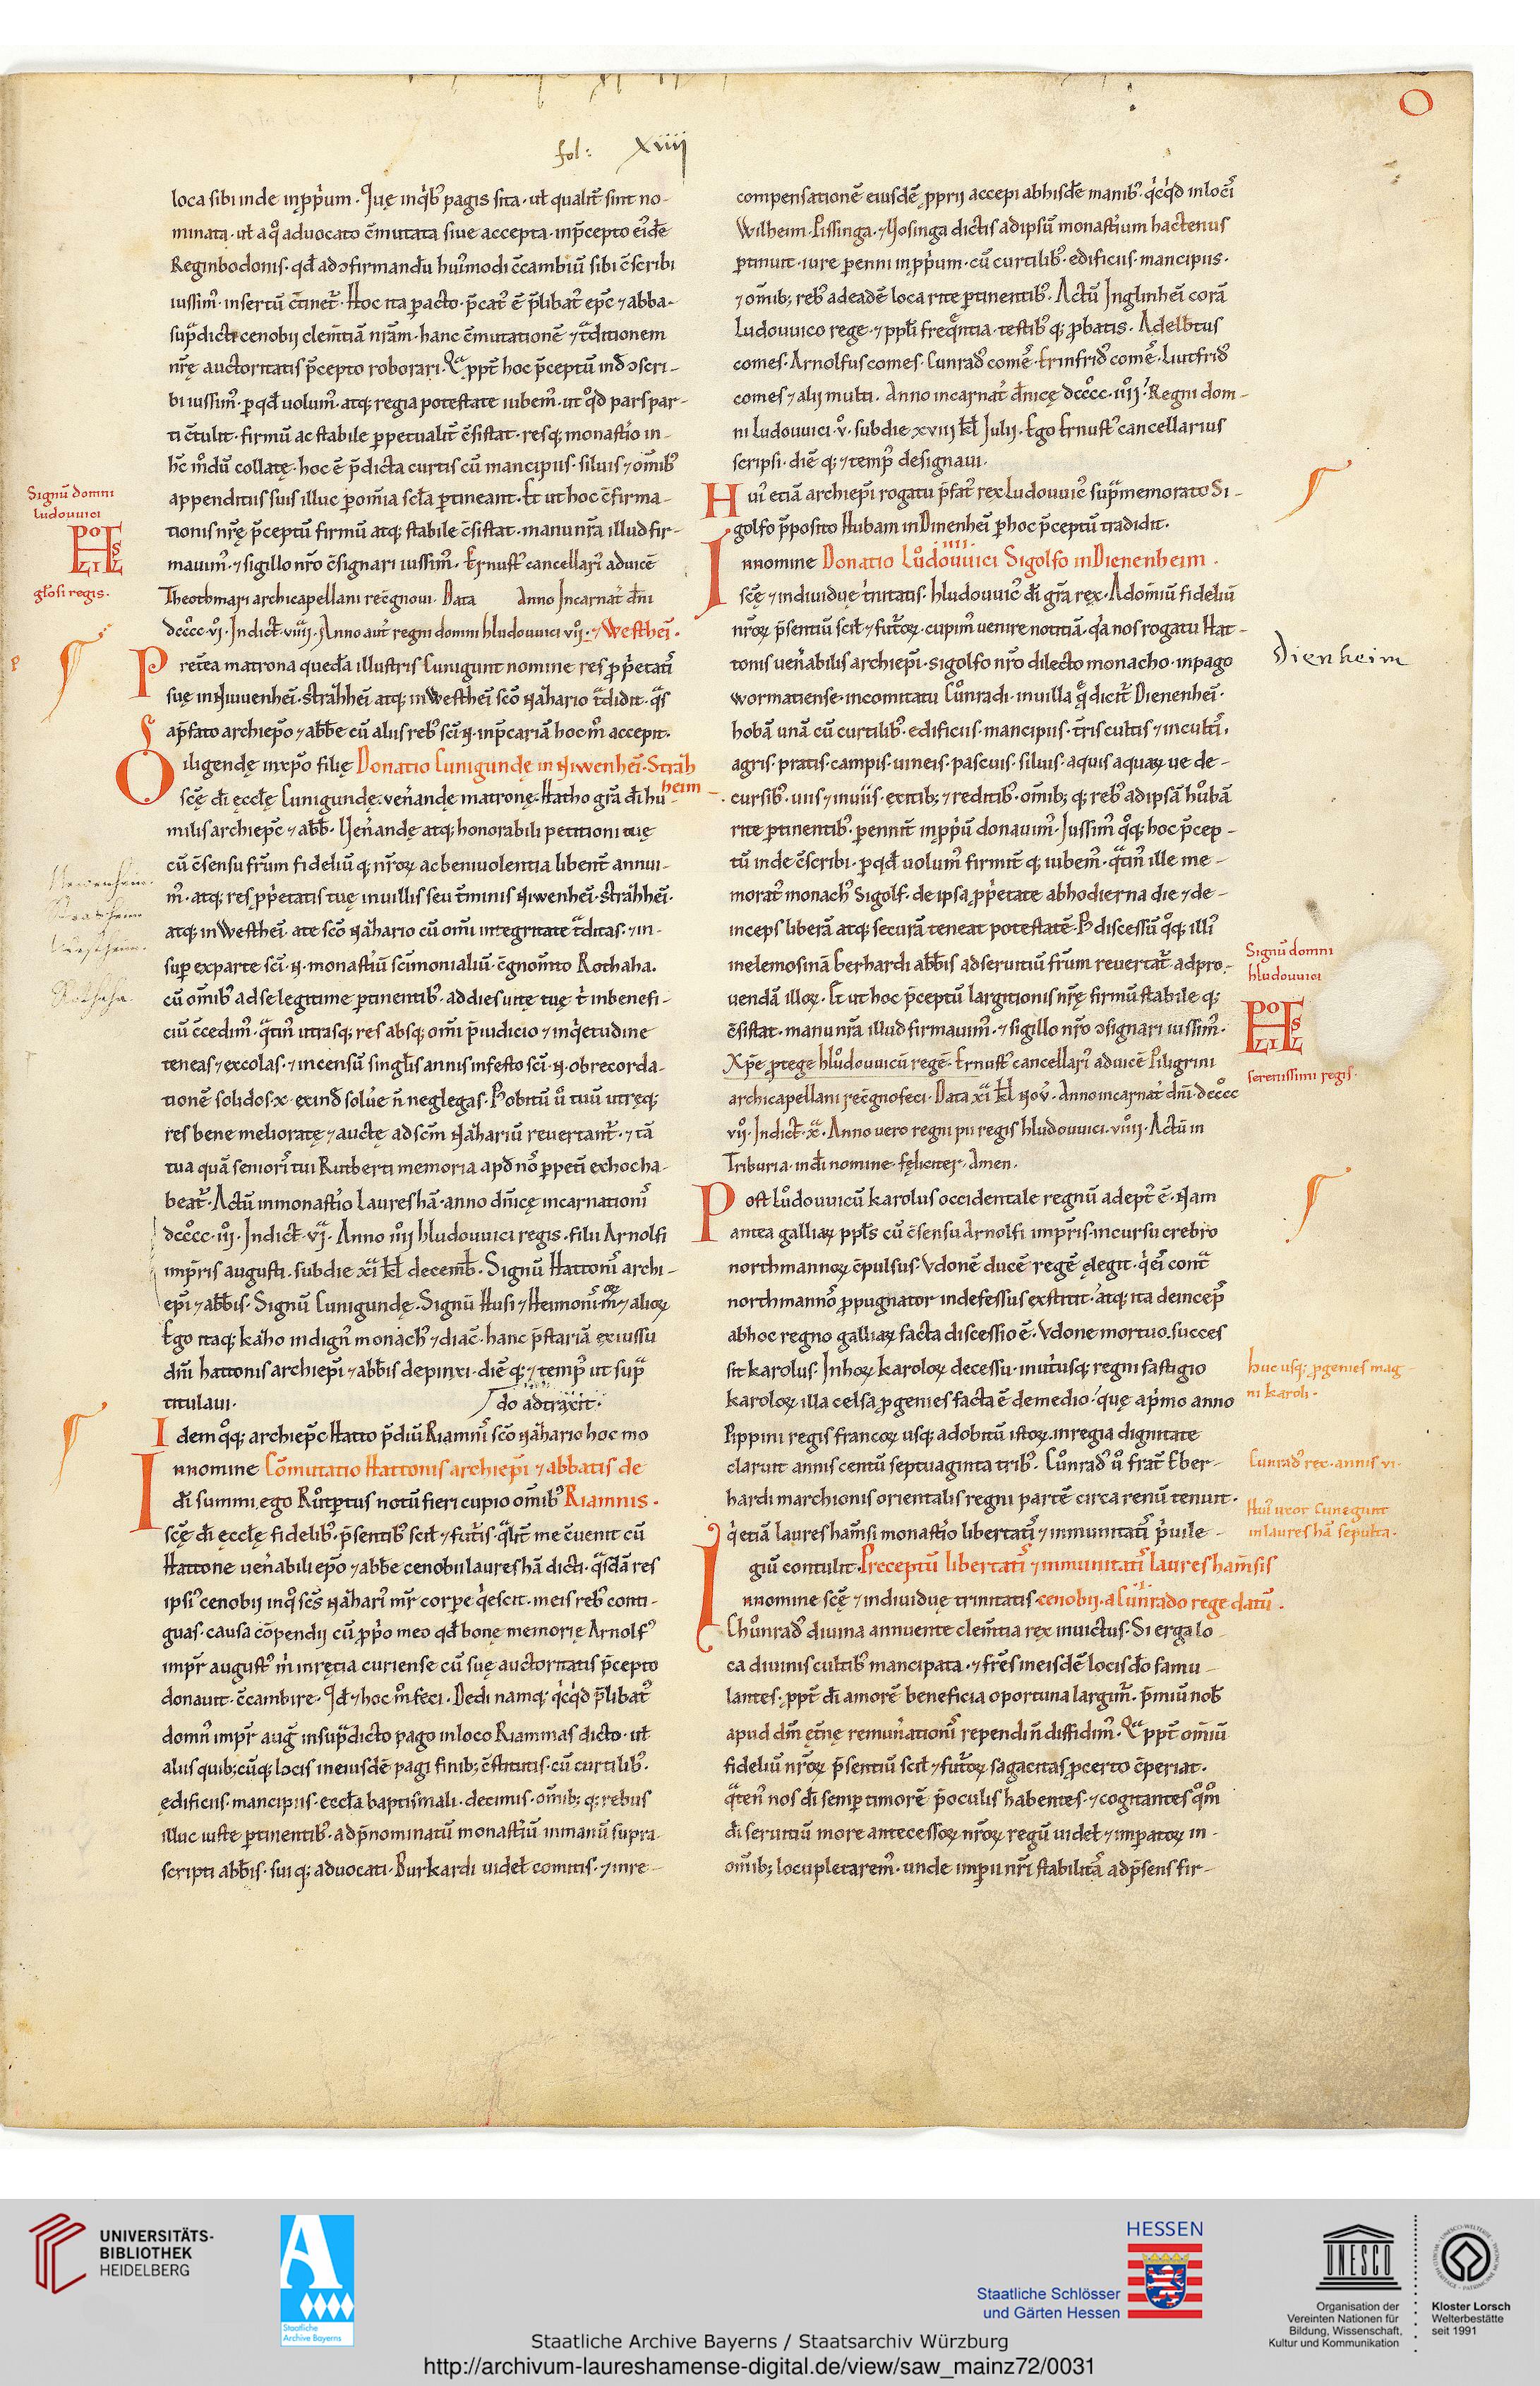 O
fol: xiiij
loca sibi inde in ꝓp̃um. Quę in qͥbꝰ pagis sita. ut̃ qualit̃ sint no-
minata. ut̃ a qͦ aduocato c̃mutata siue accepta. in p̃cepto eiꝰdẽ
Reginbodonis. qđ ad ↄfirmandũ huiꝰmodi c̃cambiũ sibi c̃scribi
iussimꝰ. insertũ c̃tinet᷑. Hoc ita pacto. p̃catꝰ ẽ p̃libatꝰ epc̃ ⁊ abba.
sup̃dicti cenobij clem̃tiã nrãm. hanc c̃mutationẽ ⁊ tͣditionem
nr̃ę auctoritatis p̃cepto roborari. Qͣ ppt̃ hoc p̃ceptũ inđ ↄscri-
bi iussimꝰ. ꝑ qđ uolumꝰ. atq; regia potestate iubemꝰ. ut qͦd pars par-
ti c̃tulit. firmũ ac stabile ꝑpetualit̃ c̃sistat. resq; monastͥo in-
hc̃ mͦdũ collatę. hoc ẽ p̃dicta curtis cũ mancipiis. siluis ⁊ om̃ibꝰ
appenditiis suis illuc ꝑ om̃ia sc̃la ꝑtineant. Et ut hoc c̃firma-
tionis nr̃ę p̃ceptũ firmũ atq; stabile c̃sistat. manu nr̃a illud fir-
mauimꝰ. ⁊ sigillo nr̃o c̃signari iussimꝰ. Ernustꝰ cancellariꝰ aduicẽ
Theothmari archicapellani rec̃gnoui. Data Anno Incarnat̃ dñi
dcccc. vi. Indict̃. viiii. Anno aut̃ regni domni hludouuici vii. ⁊ Westhei᷑.
Signũ domni
ludouuici
gl̃osi regis.
P retea matrona quedã illustris Cunigunt nomine res ꝓpͥetatꝭ
suę in Niuuenhei᷑. Strahhei᷑ atq; in Westhei᷑ scõ Nazhario tͣdidit. qͣs
a p̃fato archiepõ ⁊ abb̃e cũ aliis rebꝰ sc̃i N. in p̃cariã hoc mͦ accepit.
O iligendę in xp̃o filię Donatio Cunigundę in Niwenhei᷑. Strah
heim
scę dĩ ęccłę Cunigundę. veñandę matronę. Hatho gr̃a dĩ hu-
milis archiepc̃ ⁊ abb̃. Veñandę atq; honorabili petitioni tuę
cũ c̃sensu fr̃um fideliũ q; nr̃oꝝ ac beniuolentia libent̃ annui-
mꝰ. atq; res ꝓpͥetatis tuę in uillis seu t̃minis Niwenhei᷑. Strahhei᷑.
atq; in Westhei᷑. a te scõ Nazhario cũ om̃i integritate tͣditas. ⁊ in-
sup ex parte sc̃i. N. monastiũ sc̃imonialiũ. c̃gnom̃to Rothaha.
cũ om̃ibꝰ ad se legitime ꝑtinentibꝰ. ad dies uitę tuę tͥ in benefi-
ciũ c̃cedimꝰ. qͣtinꝰ utrasq; res absq; om̃i p̃iudicio ⁊ inqͥetudine
teneas ⁊ excolas. ⁊ in censũ singl̃is annis in festo sc̃i. N. ob recorda-
tionẽ solidos. x. exinđ soluẽ ñ neglegas. Pͦ obitũ ũ tuũ utręq;
res bene melioratę ⁊ auctę ad sc̃m Nazhariũ reuertant᷑. ⁊ tã
tua quã senioriꝰ tui Rutberti memoria apđ nõ ꝑpetũ ex hoc ha-
beat᷑. Actũ in monastͥo Laureshã. anno dñicę incarnationiꝰ
dcccc. iii. Indict̃. vi. Anno iiii hludouuici regis. filii Arnolfi
imp̃ris augusti. sub die xi kl̃ decemb̃. Signũ Hattoniꝰ archi-
epĩ ⁊ abb̃is. Signũ Cunigundę. Signũ Husi ⁊ Heimoniꝰ. ⁊ alioꝝ
Ego itaq; kazho indignꝰ monachꝰ ⁊ diac̃. hanc p̃stariã ex iussu
dñi hattonis archiepĩ ⁊ abb̃is depinxi. diẽ q; ⁊ tempꝰ ut supͣ
titulaui. do adtraxit.
I dem qͦq; archiepc̃ Hatto p̃diũ Riamniꝰ scõ Nazhario hoc mo
I nnomine Com̃utatio Hattonis archiepĩ ⁊ abbatis de
dĩ summi. ego Ruͦtꝑtus notũ fieri cupio om̃ibꝰ Riamnis.
scę dĩ ęccłę fidelibꝰ. p̃sentibꝰ scil̃ ⁊ futͥs. qͣlit̃ me c̃uenit cũ
Hattone ueñabili epõ ⁊ abb̃e cenobii laureshã dicti. qͣsdã res
ipsiꝰ cenobij in qͦ scs̃ Nazhariꝰ mr̃ corꝑe qͥescit. meis rebꝰ conti-
guas. causa cõpendij cũ ꝓpͥo meo qđ bonę memorię Arnolfꝰ
imp̃r augustꝰ mͥ in rętia curiense cũ suę auctoritatis p̃cepto
donauit. c̃cambire. Qđ ⁊ hoc mͦ feci. Dedi namq; qͥcqͥd p̃libatꝰ
domnꝰ imp̃r aug̃ in sup̃dicto pago in loco Riammas dicto. ut̃
aliis quib; cũq; locis in eiusdẽ pagi finib; c̃stitutis. cũ curtilibꝰ.
ędificiis. mancipiis. eccl̃a baptismali. decimis. om̃ib; q; rebus
illuc iuste ꝑtinentibꝰ. ad p̃nominatũ monastiũ in manũ supra
scripti abb̃is. sui q; aduocati. Burkardi uidel̃ comitis. ⁊ in re-
compensationẽ eiusdẽ ꝓprij accepi ab hisdẽ manibꝰ. qͥcqͥd in lociꝰ
Wilheim. Pissinga. ⁊ Hosinga dictis ad ipsũ monastͥum hactenus
ꝑtinuit. iure ꝑenni in ꝓp̃um. cũ curtilibꝰ. edificiis. mancipiis.
⁊ om̃ib; rebꝰ ad eadẽ loca rite ꝑtinentibꝰ. Actũ Inglinhei᷑ corã
Ludouuico rege. ⁊ ppl̃i freqͤntia. testibꝰ q; ꝓbatis. Adelb̃tus
comes. Arnolfus comes. Cunradꝰ comeꝰ. Erinfridꝰ comeꝰ. Liutfridꝰ
comes ⁊ alij multi. Anno incarnat̃ dñicę dcccc. iiii. Regni dom-
ni Ludouuici. v. sub die xviii kl̃ Julij. Ego Ernustꝰ cancellarius
scripsi. diẽ q; ⁊ tempꝰ designaui.
H uiꝰ etiã archiepĩ rogatu p̃fatꝰ rex Ludouuicꝰ supͣ memorato Si-
golfo p̃posito Hubam in Dinenhei᷑ ꝑ hoc p̃ceptũ tradidit.
I nnomine Donatio Luͦdouuici iiii Sigolfo in Dienenheim.
scę ⁊ indiuiduę tͥnitatis. hludouuicꝰ dĩ gr̃a rex. Ad om̃iũ fideliũ
nr̃oꝝ p̃sentiũ scil̃ ⁊ futͥoꝝ. cupimꝰ uenire notitiã. qͥa nos rogatu Hat-
tonis ueñabilis archiepĩ. sigolfo nr̃o dilecto monacho. in pago
wormatiense. in comitatu Cuͦnradi. in uilla qͤ dicit᷑ Dienenhei᷑.
hobã unã cũ curtilibꝰ. edificiis. mancipiis. tr̃is cultis ⁊ incultiꝰ.
agris. pratis. campis. uineis. pascuis. siluis. aquis aquaꝝ ue de-
cursibꝰ. uiis ⁊ inuiis. exitib; ⁊ reditibꝰ. om̃ib; q; rebꝰ ad ipsã huͦbã
rite ꝑtinentibꝰ. ꝑennit̃ in ꝓp̃ũ donauimꝰ. Jussimꝰ qͦq; hoc p̃cep-
tũ inde c̃scribi. ꝑ qđ uolumꝰ firmit̃ q; iubemꝰ. qͣtinꝰ ille me-
moratꝰ monachꝰ Sigolf. de ipsa ꝓpͥetate ab hodierna die ⁊ de-
inceps liberã atq; securã teneat potestatẽ. Pͦ discessũ qͦq; illiꝰ
in elemosinã berhardi abb̃is ad seruitiũ fr̃um reuertat᷑. ad pro-
uendã illoꝝ. Et ut hoc p̃ceptũ largitionis nr̃ę firmũ stabile q;
c̃sistat. manu nr̃a illud firmauimꝰ. ⁊ sigillo nr̃o ↄsignari iussimꝰ.
Xp̃e ꝓtege hluͦdouuicũ regẽ. Ernustꝰ cancellariꝰ aduicẽ Piligrini
archicapellani rec̃gnofeci. Data xi kl̃ Nov̄. Anno incarnat̃ dñi. dcccc
vii. Indict̃. x. Anno uero regni pii regis hludouuici. viiii. Actũ in
Triburia. in dĩ nomine. fęliciter. Amen.
Dienheim
Signũ domni
hludouuici
serenissimi regis.
P ost Luͦdouuicũ karolus occidentale regnũ adeptꝰ ẽ. Nam
antea galliaꝝ ppl̃s cũ c̃sensu Arnolfi imp̃ris. incursu crebro
northmannoꝝ c̃pulsus. Vdonẽ ducẽ regẽ ęlegit. qͥ eiꝰ contͣ
northmannoꝰ ꝓpugnator indefessus exstitit. atq; ita deincepꝰ
ab hoc regno galliaꝝ facta discessio ẽ. Vdone mortuo. succes
sit karolus. In hoꝝ karoloꝝ decessu. in utͥusq; regni fastigio
karoloꝝ illa celsa ꝓgenies facta ẽ de medio. quę a pͥmo anno
Pippini regis francoꝝ usq; ad obitũ istoꝝ. in regia dignitate
claruit annis centũ septuaginta tribꝰ. Cuͦnradꝰ ũ frat̃ Eber-
hardi marchionis orientalis regni partẽ circa renũ tenuit.
qͥ etiã laureshamsi monastͥo libertatiꝰ ⁊ immunitatiꝰ pͥuile-
giũ contulit. Preceptũ libertatiꝰ ⁊ immunitatiꝰ laureshamsis
I nnomine scę ⁊ indiuiduę trinitatis. cenobij. a Cuͦnrado rege datũ.
Chuͦnradꝰ diuina annuente clem̃tia rex inuictus. Si erga lo-
ca diuinis cultibꝰ mancipata. ⁊ fr̃es in eisdẽ locis dõ famu-
lantes. ppt̃ dĩ amorẽ beneficia oportuna largimꝰ. p̃miũ nob̃
apud dñm ęt̃nę remuñationiꝰ rependi ñ diffidimꝰ. Qͣ ppt̃ om̃iũ
fideliũ nr̃oꝝ p̃sentiũ scil̃ ⁊ futͥoꝝ sagacitas ꝓcerto c̃periat.
qͣtenꝰ nos dĩ semꝑ timorẽ p̃ oculis habentes. ⁊ cogitantes qͦm
dĩ seruitiũ more antecessoꝝ nr̃oꝝ regũ uidel̃ ⁊ imꝑatoꝝ in-
om̃ib; locupletaremꝰ. unde imꝑii nr̃i stabilitaꝰ ad p̃sens fir-
huc usq; ꝓgenies mag
ni karoli.
Cunradꝰ rex. annis vi.
Huiꝰ uxor Cunegunt
in laureshã sepulta.
UNIVERSITÄTS-
BIBLIOTHEK
HEIDELBERG
Staatliche
Archive Bayerns
HESSEN
Staatliche Schlösser
und Gärten Hessen
UNESCO
Organisation der
Vereinten Nationen für
Bildung, Wissenschaft,
Kultur und Kommunikation
Kloster Lorsch
Welterbestätte
seit 1991
Staatliche Archive Bayerns / Staatsarchiv Würzburg
http://archivum-laureshamense-digital.de/view/saw_mainz72/0031